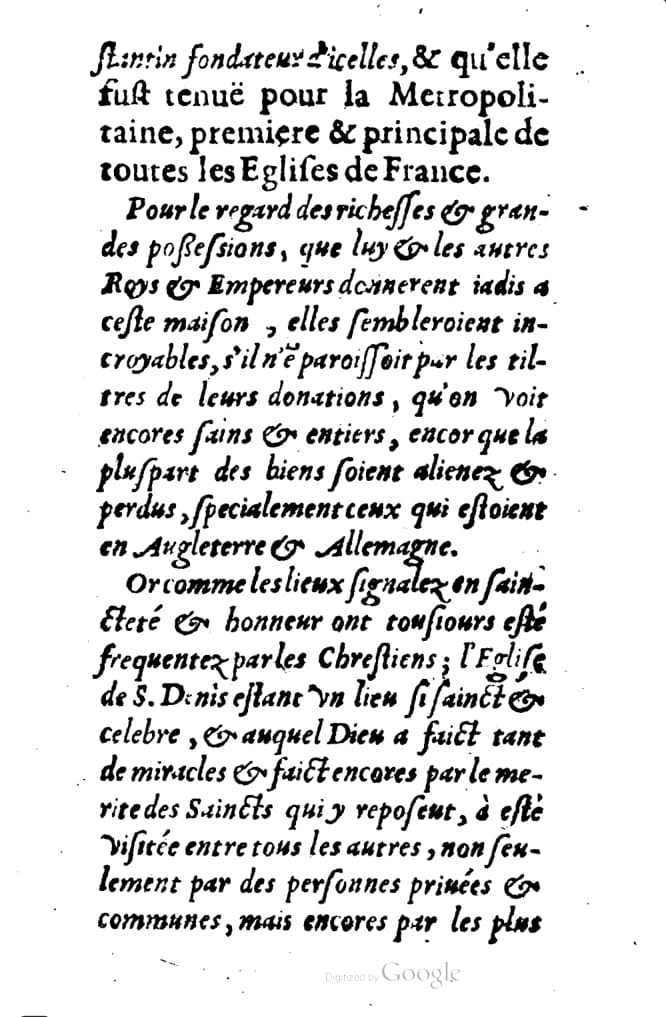 ſtantin fondateur d'icelles, & qu'elle
fuſt tenuë pour la Metropoli-
taine, premiere & principale de
toutes les Egliſes de France.
Pour le regard des richeſſes & gran-
des poßeſsions, que luy & les autres
Roys & Empereurs donnerent iadis a
ceſte maiſon , elles ſembleroient in-
croyables, s'il n'ẽ paroiſſoit par les til-
tres de leurs donations, qu'on voit
encores ſains & entiers, encor que la
pluſpart des biens ſoient alienez &
perdus, ſpecialement ceux qui eſtoient
en Augleterre & Allemagne.
Or comme les lieux ſignalez en ſain-
cteté & honneur ont touſiours eſté
frequentez par les Chreſtiens; l'Egliſe
de S. Denis eſtant vn lieu ſi ſainct &
celebre , & auquel Dieu a faict tant
de miracles & faict encores par le me-
rite des Saincts qui y repoſeut, à eſté
viſitée entre tous les autres, non ſeu-
lement par des perſonnes priuées &
communes, mais encores par les plus
Digitized by Google